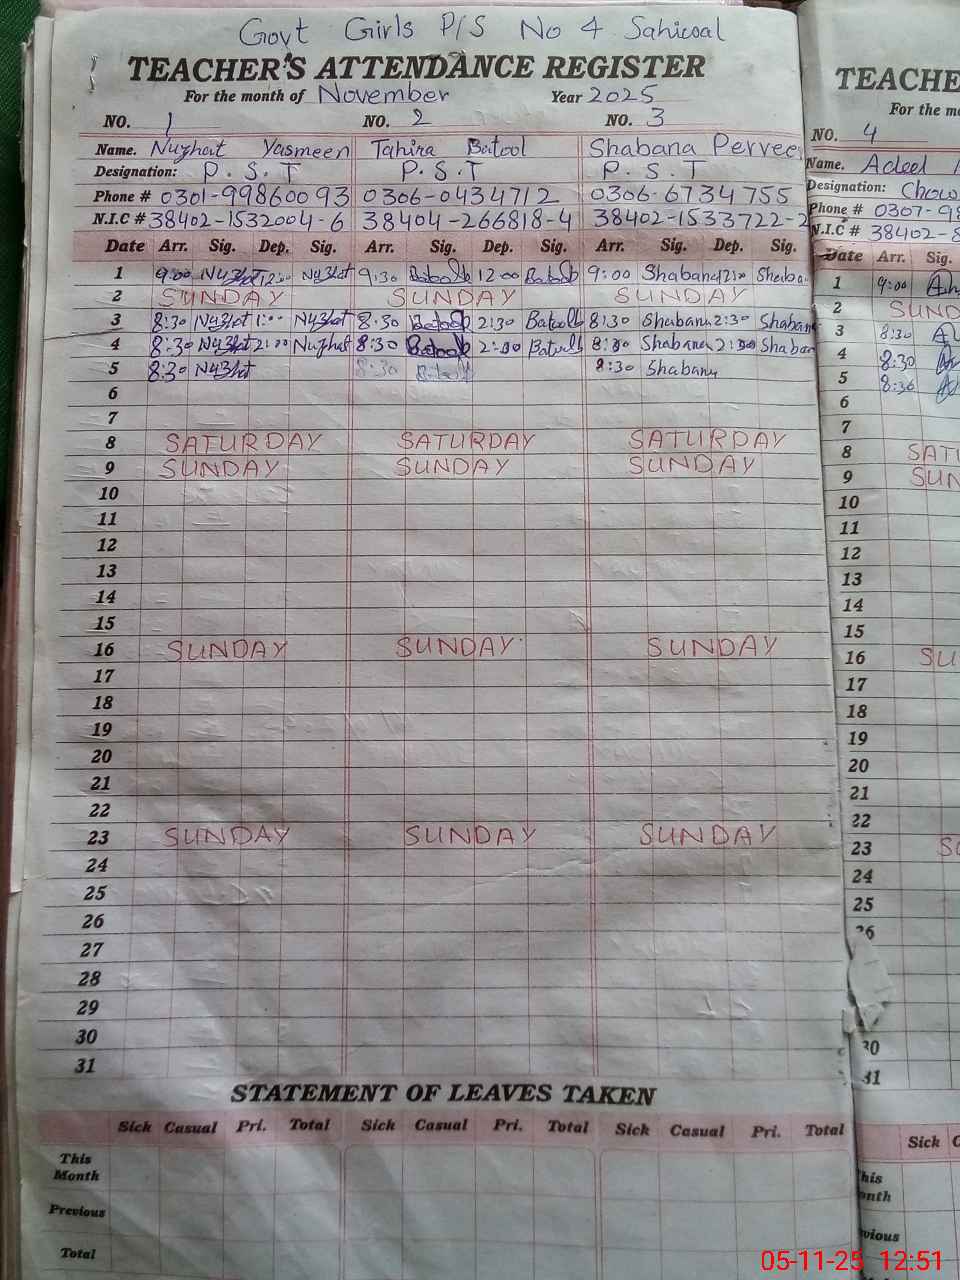 Govt Girls P/S No 4 Sahiwal
TEACHER'S ATTENDANCE REGISTER
For the month of November Year 2025
NO. 1 NO. 2 NO. 3
Name. Nuzhat Yasmeen Tahira Batool Shabana Pervee
Designation: P.S.T P.S.T P.S.T
Phone # 0301-9986093 0306-0434712 0306-6734755
N.I.C # 38402-1532004-6 38404-266818-4 38402-1533722-2
Date Arr. Sig. Dep. Sig. Arr. Sig. Dep. Sig. Arr. Sig. Dep. Sig.
1 9:00 Nuzhat 12:00 Nuzhat 9:30 Batool 12:00 Batool 9:00 Shabana 12:00 Shaba
2 SUNDAY SUNDAY SUNDAY
3 8:30 Nuzhat 1:00 Nuzhat 8:30 Batool 2:30 Batool 8:30 Shabana 2:30 Shaban
4 8:30 Nuzhat 2:00 Nuzhat 8:30 Batool 2:30 Batool 8:30 Shabana 2:30 Shaban
5 8:30 Nuzhat 8:30 Batool 8:30 Shabana
6
7
8 SATURDAY SATURDAY SATURDAY
9 SUNDAY SUNDAY SUNDAY
10
11
12
13
14
15
16 SUNDAY SUNDAY SUNDAY
17
18
19
20
21
22
23 SUNDAY SUNDAY SUNDAY
24
25
26
27
28
29
30
31
STATEMENT OF LEAVES TAKEN
Sick Casual Pri. Total Sick Casual Pri. Total Sick Casual Pri. Total
This
Month
Previous
Total
TEACHE
For the mo
NO. 4
Name. Adeel
Designation: Chow
Phone # 0307-98
N.I.C # 38402-8
Date Arr. Sig.
1 9:00
2 SUND
3 8:30
4 8:30
5 8:30
6
7
8 SATU
9 SUN
10
11
12
13
14
15
16 SU
17
18
19
20
21
22
23 SU
24
25
26
30
31
Sick C
his
onth
vious
05-11-25 12:51